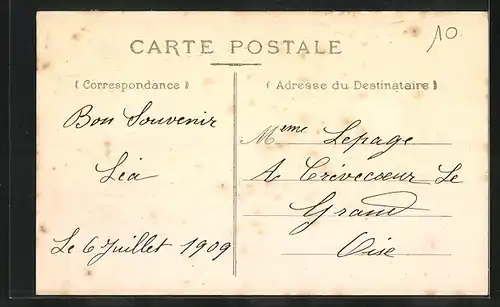 10.
CARTE POSTALE
(Correspondance)
(Adresse du Destinataire)
Bon Souvenir
Léa
Le 6 Juillet 1909
Mme Lepage
A Crévecœur Le
Grand
Oise